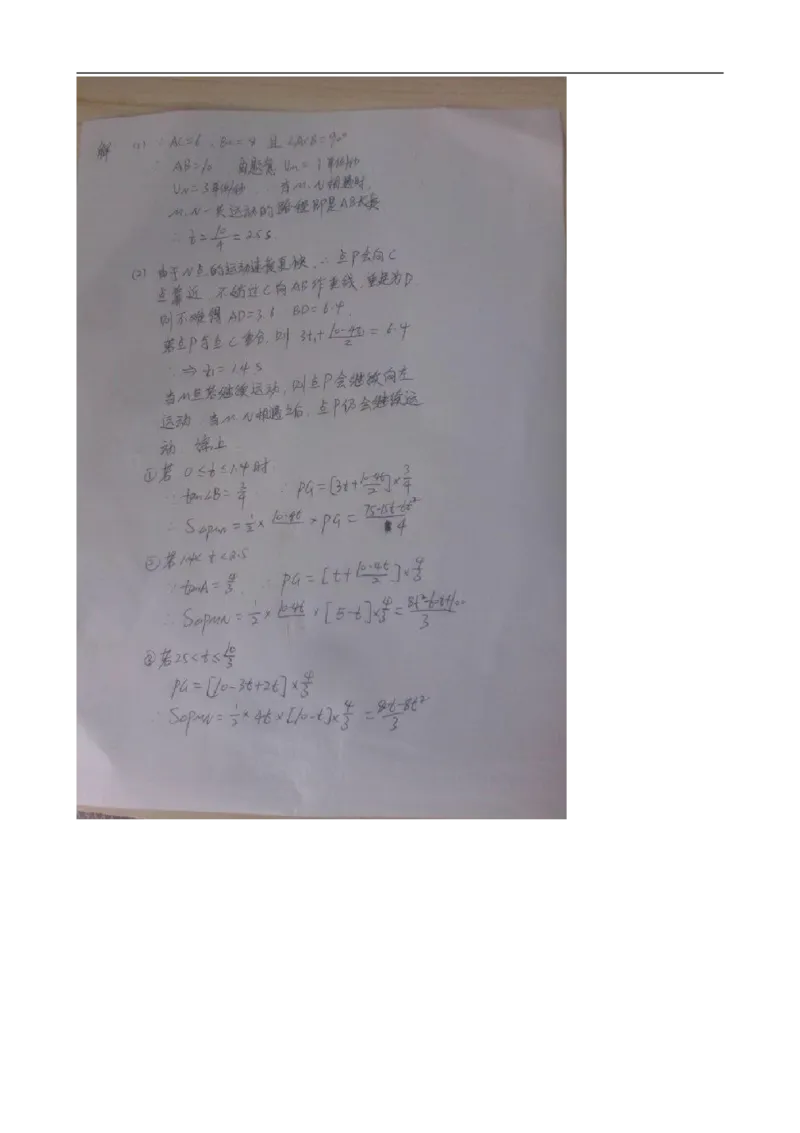 解 (1) ∵ AC=6、BC=8 且 ∠ACB=90°
∴ AB=10 由题意 Vm=1单位/秒
VN=3单位/秒 . 当M、N相遇时,
M、N一共运动的路程即是AB长度
∴ t=10/4=2.5 s
(2) 由于N点的运动速度更快,∴点P会向C
点靠近 不妨过C向AB作垂线,垂足为D
则不难得 AD=3.6 BD=6.4 .
若点P与点C重合,则 3t₁+(10-4t₁)/2=6.4
∴⇒ t₁=1.4 s
当M点若继续运动,则点P会继续向左
运动 当M、N相遇后,点P仍会继续运
动 综上
①若 0≤t≤1.4时
∵ tan∠B=3/4 . ∴ PG=[3t+(10-4t)/2]×3/4
∴ S△PMN=1/2×10-4t×PG=/4
②若1.4<t<2.5
∵ tanA=4/3 . ∴ PG=[t+(10-4t)/2]×4/3
∴ S△PMN=1/2×10-4t×[5-t]×4/3=/3
③若2.5<t≤10/3
PG=[10-3t+2t]×4/3
∴ S△PMN=1/2×4t×[10-t]×4/3=/3